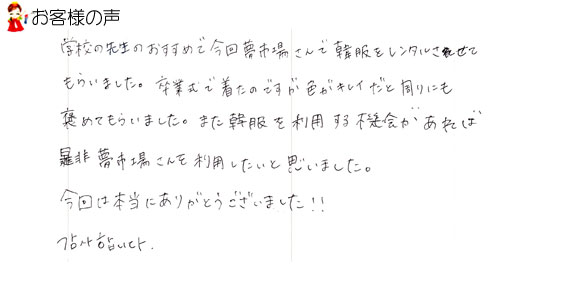 お客様の声
学校の先生のおすすめで今回夢市場さんで韓服をレンタルさせて
もらいました。卒業式で着たのですが色がキレイだと周りにも
褒めてもらいました。また韓服を利用する機会があれば
是非夢市場さんを利用したいと思いました。
今回は本当にありがとうございました!!
감사합니다.